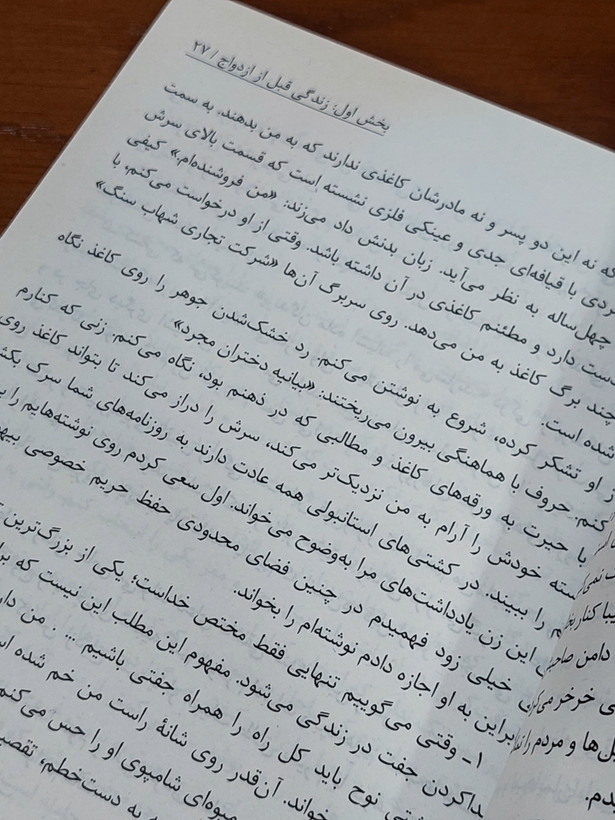 بخش اول: زندگی قبل از ازدواج / ۲۷
که نه این دو پسر و نه مادرشان کاغذی ندارند که به من بدهند. به سمت
مردی با قیافه‌ای جدی و عینکی فلزی نشسته است که قسمت بالای سرش
چهل‌ساله به نظر می‌آید. زبان بدنش داد می‌زند: «من فروشنده‌ام.» کیفی
دارد و مطئنم کاغذی در آن داشته باشد. وقتی از او درخواست می‌کنم، با
چند برگ کاغذ به من می‌دهد. روی سربرگ آن‌ها «شرکت تجاری شهاب سنگ»
شده است.
از او تشکر کرده، شروع به نوشتن می‌کنم. رد خشک‌شدن جوهر را روی کاغذ نگاه
کنم. حروف با هماهنگی بیرون می‌ریختند: «بیانیه دختران مجرد»
با حیرت به ورقه‌های کاغذ و مطالبی که در ذهنم بود، نگاه می‌کنم. زنی که کنارم
خودش را آرام به من نزدیک‌تر می‌کند، سرش را دراز می‌کند تا بتواند کاغذ روی
را ببیند. در کشتی‌های استانبولی همه عادت دارند به روزنامه‌های شما سرک
این زن یادداشت‌های مرا به‌وضوح می‌خواند. اول سعی کردم روی نوشته‌هایم را
خیلی زود فهمیدم در چنین فضای محدودی حفظ حریم خصوصی
به او اجازه دادم نوشته‌ام را بخواند.
۱- وقتی می‌گوییم تنهایی فقط مختص خداست؛ یکی از بزرگ‌ترین
جفت در زندگی می‌شود. مفهوم این مطلب این نیست که
نوح باید کل راه را همراه جفتی باشیم ... . من
آن‌قدر روی شانهٔ راست من خم شده
میوه‌ای شامپوی او را حس می‌کنم
به دست‌خطم،
کنار
دامن
خرخر
و مردم را